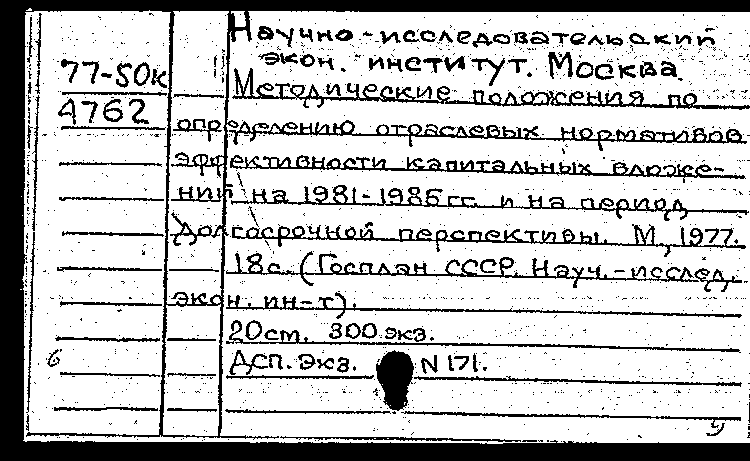 Научно-исследовательский
экон. институт. Москва.
77-50к
Методические положения по
А762
определению отраслевых нормативов
эффективности капитальных вложе-
ний на 1981-1985 гг. и на период
долгосрочной перспективы. М., 1977.
18с. (Госплан СССР. Науч.-исслед.
экон. ин-т).
20см. 300 экз.
6
Дсп. Экз. N 171.